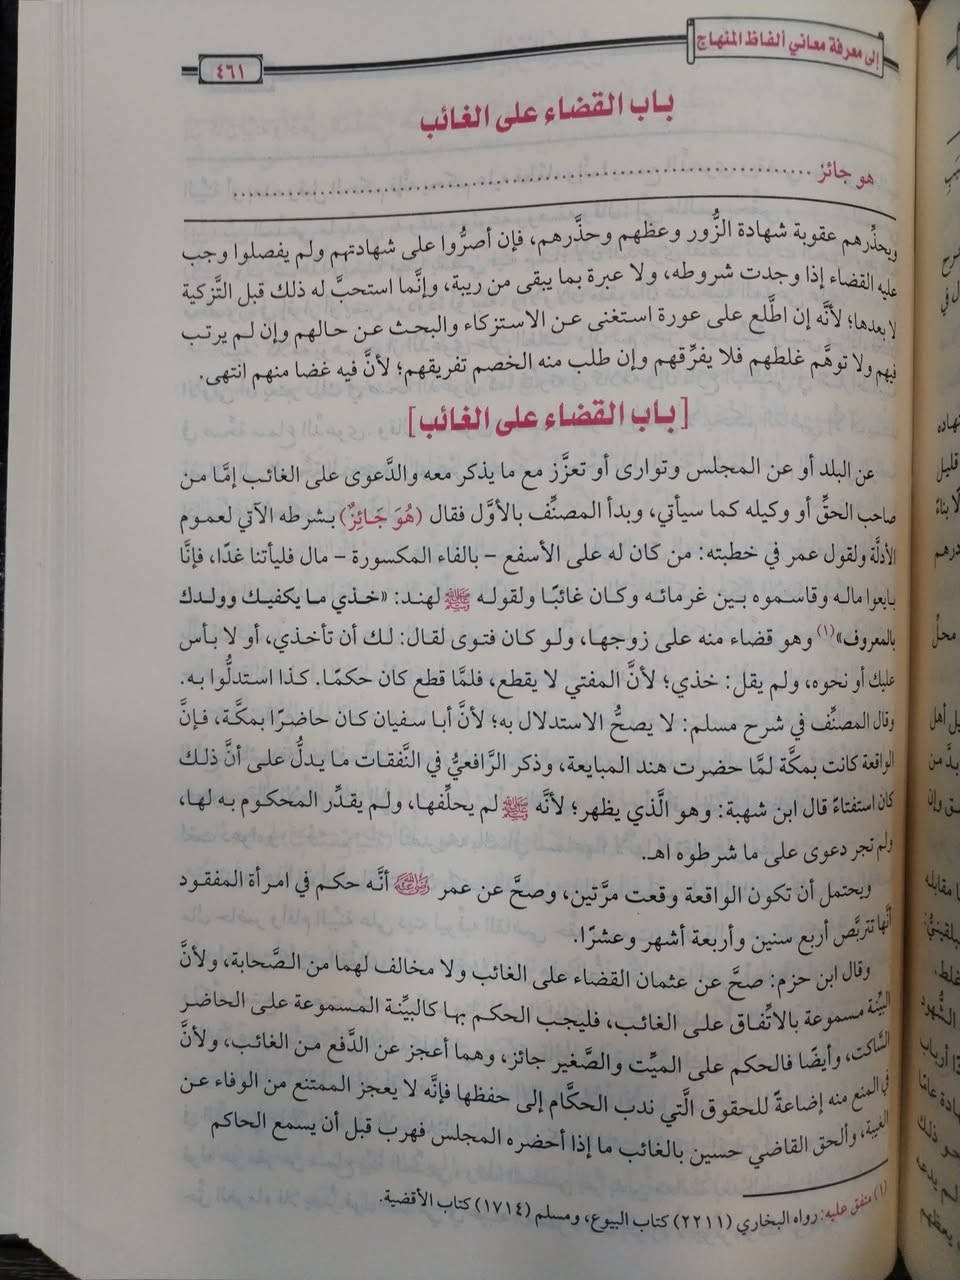 إلى معرفة معاني ألفاظ المنهاج
٤٦١
باب القضاء على الغائب
هو جائز
ويحذِّرهم عقوبة شهادة الزُّور وعظهم وحذَّرهم، فإن أصرُّوا على شهادتهم ولم يفصلوا وجب
عليه القضاء إذا وجدت شروطه، ولا عبرة بما يبقى من ريبة، وإنَّما استحبَّ له ذلك قبل التَّزكية
لا بعدها؛ لأنَّه إن اطَّلع على عورة استغنى عن الاستزكاء والبحث عن حالهم وإن لم يرتب
فيهم ولا توهَّم غلطهم فلا يفرِّقهم وإن طلب منه الخصم تفريقهم؛ لأنَّ فيه غضا منهم انتهى.
[باب القضاء على الغائب]
عن البلد أو عن المجلس وتوارى أو تعزَّز مع ما يذكر معه والدَّعوى على الغائب إمَّا من
صاحب الحقِّ أو وكيله كما سيأتي، وبدأ المصنِّف بالأوَّل فقال (هُوَ جَائِزٌ) بشرطه الآتي لعموم
الأدلَّة ولقول عمر في خطبته: من كان له على الأسفع – بالفاء المكسورة – مال فليأتنا غدًا، فإنَّا
بايعوا ماله وقاسموه بين غرمائه وكان غائبًا ولقوله ﷺ لهند: «خذي ما يكفيك وولدك
بالمعروف»(١) وهو قضاء منه على زوجها، ولو كان فتوى لقال: لك أن تأخذي، أو لا بأس
عليك أو نحوه، ولم يقل: خذي؛ لأنَّ المفتي لا يقطع، فلمَّا قطع كان حكمًا. كذا استدلُّوا به.
وقال المصنِّف في شرح مسلم: لا يصحُّ الاستدلال به؛ لأنَّ أبا سفيان كان حاضرًا بمكَّة، فإنَّ
الواقعة كانت بمكة لمَّا حضرت هند المبايعة، وذكر الرَّافعيُّ في النَّفقات ما يدلُّ على أنَّ ذلك
كان استفتاءً قال ابن شهبة: وهو الَّذي يظهر؛ لأنَّه ﷺ لم يحلِّفها، ولم يقدِّر المحكوم به لها،
ولم تجر دعوى على ما شرطوه اهـ.
ويحتمل أن تكون الواقعة وقعت مرَّتين، وصحَّ عن عمر رضي الله عنه أنَّه حكم في امرأة المفقود
أنَّها تتربَّص أربع سنين وأربعة أشهر وعشرًا.
وقال ابن حزم: صحَّ عن عثمان القضاء على الغائب ولا مخالف لهما من الصَّحابة، ولأنَّ
البيِّنة مسموعة بالاتِّفاق على الغائب، فليجب الحكم بها كالبيِّنة المسموعة على الحاضر
السَّاكت، وأيضًا فالحكم على الميِّت والصَّغير جائز، وهما أعجز عن الدَّفع من الغائب، ولأنَّ
في المنع منه إضاعةً للحقوق الَّتي ندب الحكَّام إلى حفظها فإنَّه لا يعجز الممتنع من الوفاء عن
الغيبة، وألحق القاضي حسين بالغائب ما إذا أحضره المجلس فهرب قبل أن يسمع الحاكم
(١) متفق عليه: رواه البخاري (٢٢١١) كتاب البيوع، ومسلم (١٧١٤) كتاب الأقضية.